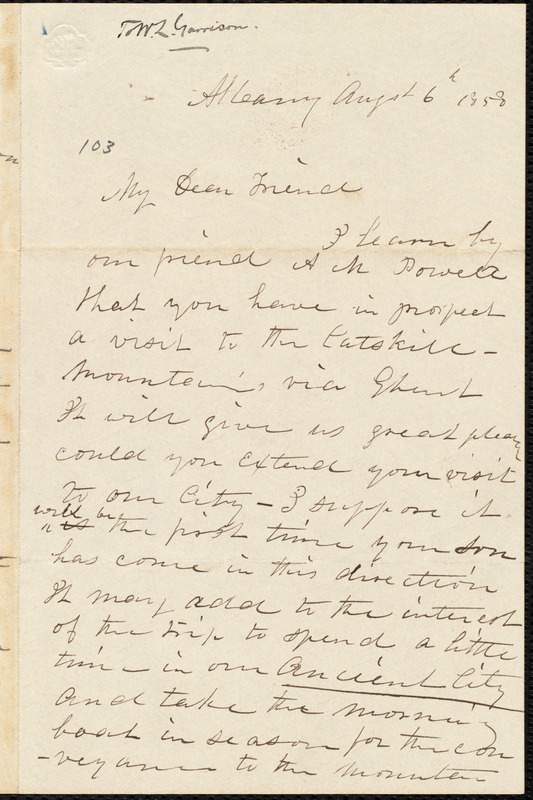 To W. L. Garrison.
Albany Augst 6th 1858
103
My Dear Friend
I learn by
our friend A M Powell
that you have in prospect
a visit to the Catskill-
Mountains, via Ghent
It will give us great pleasure
could you extend your visit
to our City - I suppose it
will be
is the first time your son
has come in this direction
It may add to the interest
of the trip to spend a little
time in our Ancient City
and take the morning
boat in season for the con
-veyance to the Mountain